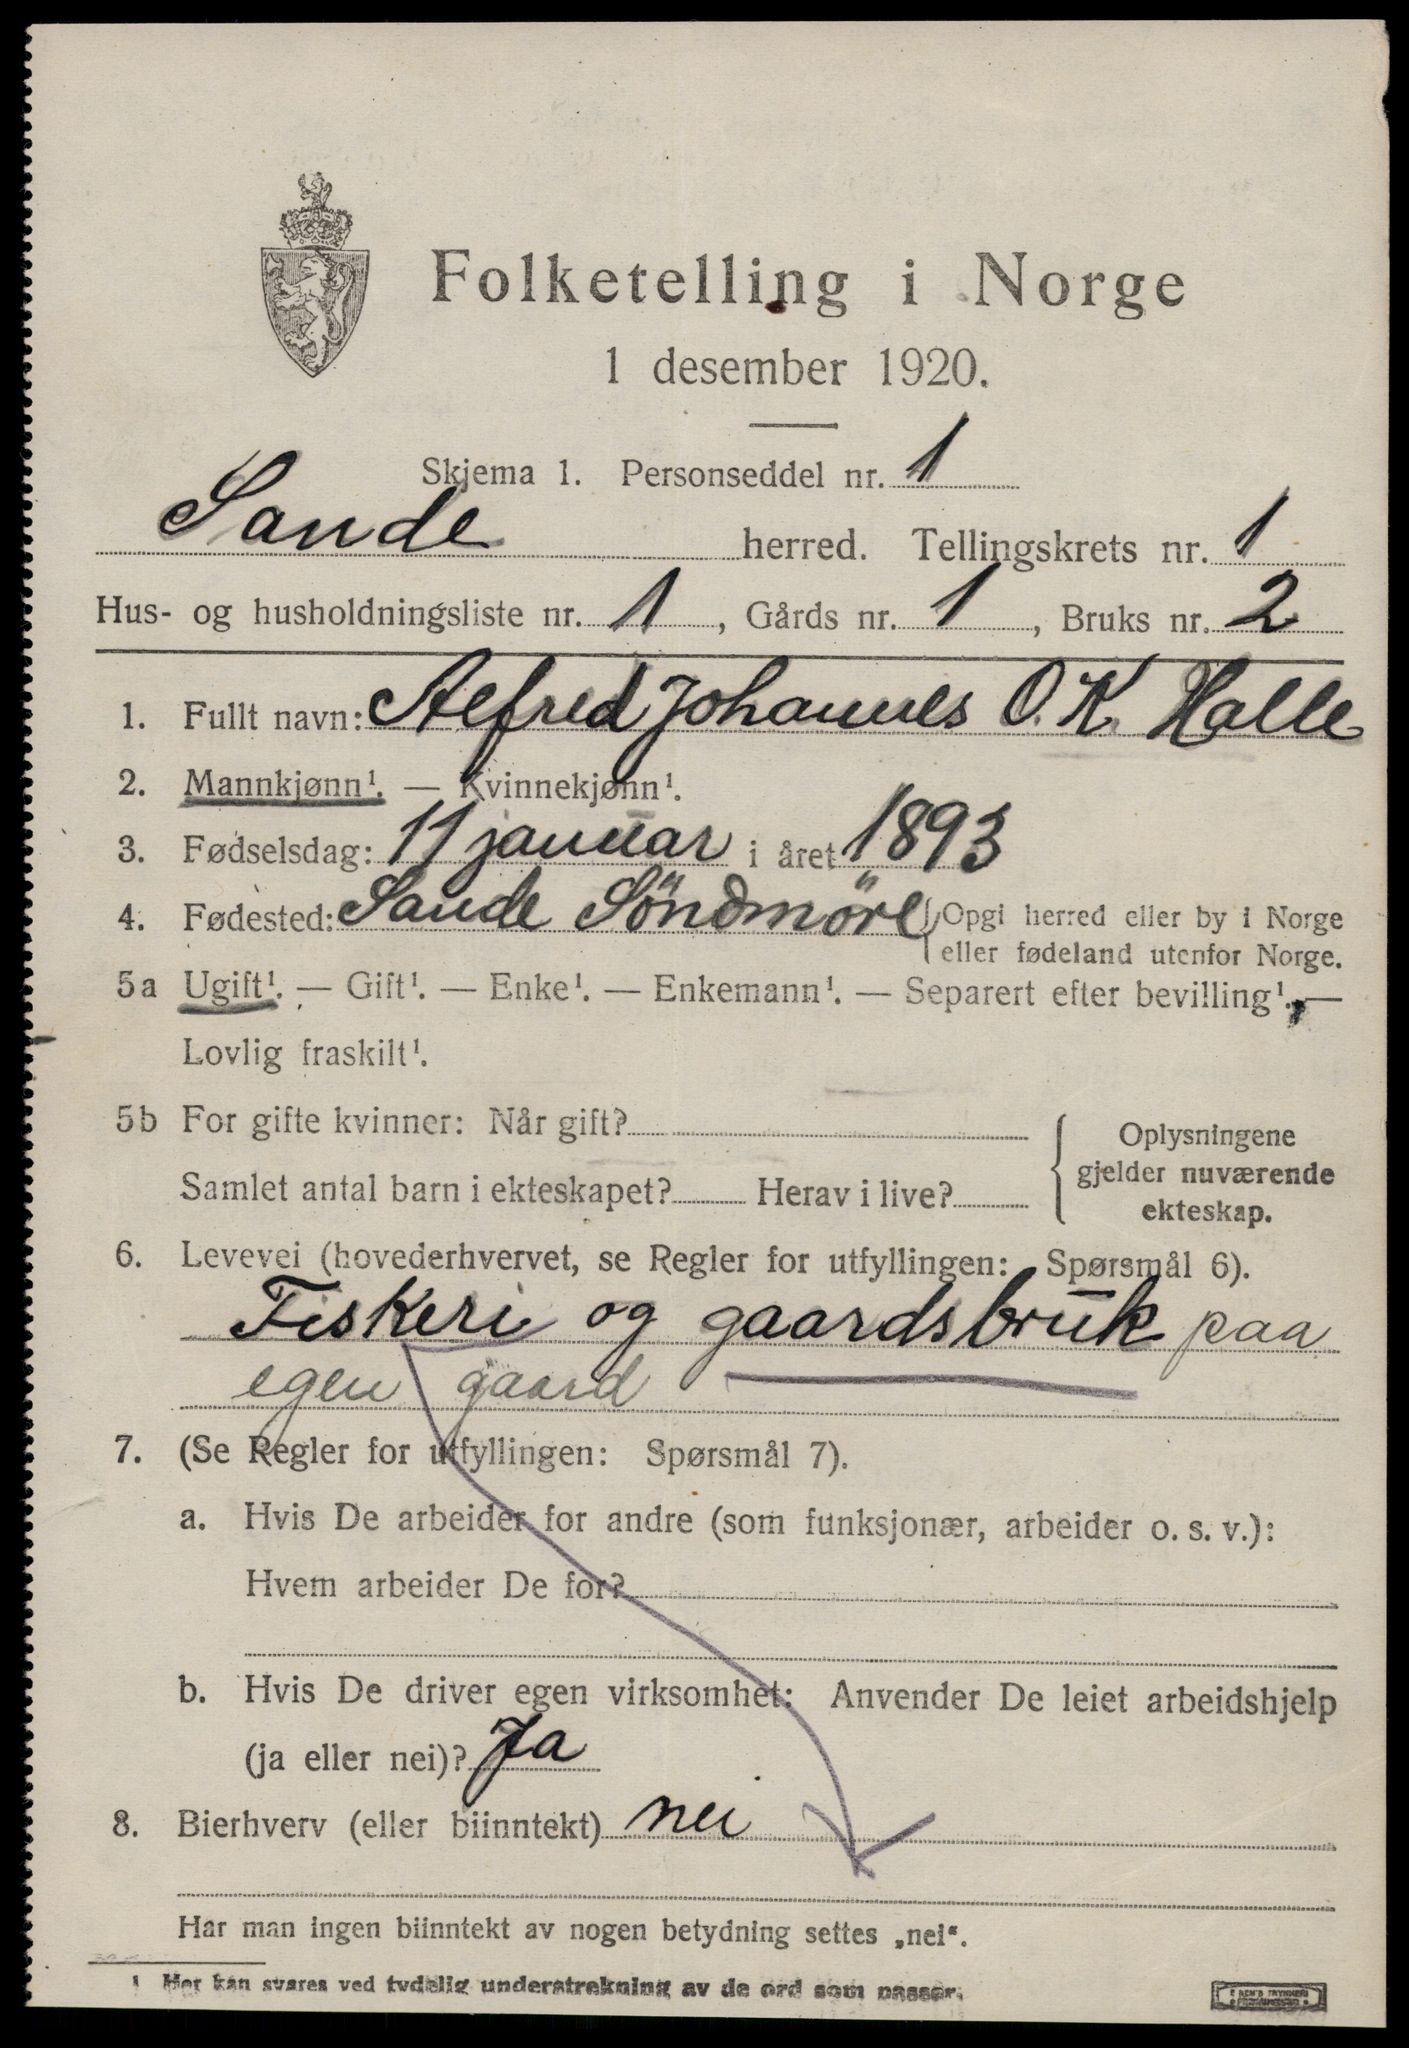 Folketelling i Norge
1 desember 1920.
Skjema 1. Personseddel nr. 1
Sande herred. Tellingskrets nr. 1
Hus- og husholdningsliste nr. 1, Gårds nr. 1, Bruks nr. 2
1. Fullt navn: Alfred Johannes O. K. Halle
2. Mannkjønn¹. — Kvinnekjønn¹.
3. Fødselsdag: 11 januar i året 1893
4. Fødested: Sande Söndmöre { Opgi herred eller by i Norge
eller fødeland utenfor Norge.
5a Ugift¹. — Gift¹. — Enke¹. — Enkemann¹. — Separert efter bevilling¹. —
Lovlig fraskilt¹.
5b For gifte kvinner: Når gift?
Samlet antal barn i ekteskapet? Herav i live?
Oplysningene
gjelder nuværende
ekteskap.
6. Levevei (hovederhvervet, se Regler for utfyllingen: Spørsmål 6).
Fiskeri og gaardsbruk paa
egen gaard
7. (Se Regler for utfyllingen: Spørsmål 7).
a. Hvis De arbeider for andre (som funksjonær, arbeider o. s. v.):
Hvem arbeider De for?
b. Hvis De driver egen virksomhet: Anvender De leiet arbeidshjelp
(ja eller nei)? Ja
8. Bierhverv (eller biinntekt) nei
Har man ingen biinntekt av nogen betydning settes „nei“.
1 Her kan svares ved tydelig understrekning av de ord som passer.